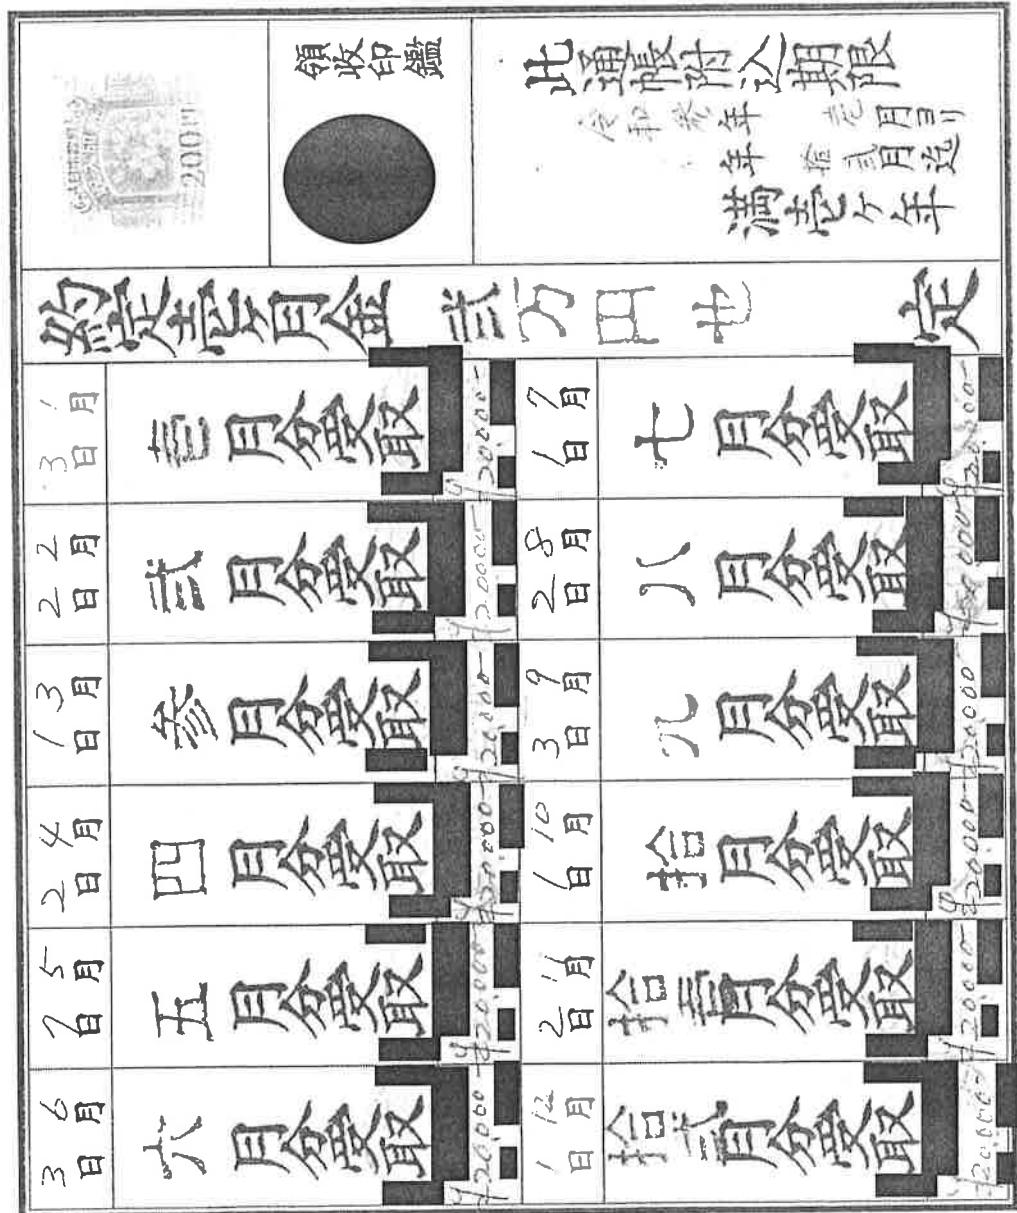 此通帳附込期限
令和参年 壱月ヨリ
年 拾弐月迄
満壱ケ年
領收印鑑
200円
約定壱ヶ月金 弐万円也 定
1月3日 壱月分受取 ¥20000-
2月2日 弐月分受取 ¥20000-
3月1日 参月分受取 ¥20,000-
4月2日 四月分受取 ¥20000-
5月7日 五月分受取 ¥20000-
6月3日 六月分受取 ¥20000-
7月1日 七月分受取 ¥20000-
8月2日 八月分受取
9月3日 九月分受取 ¥20000-
10月1日 拾月分受取 ¥20000-
11月2日 拾壱月分受取 ¥20000-
12月1日 拾弐月分受取 ¥20000-